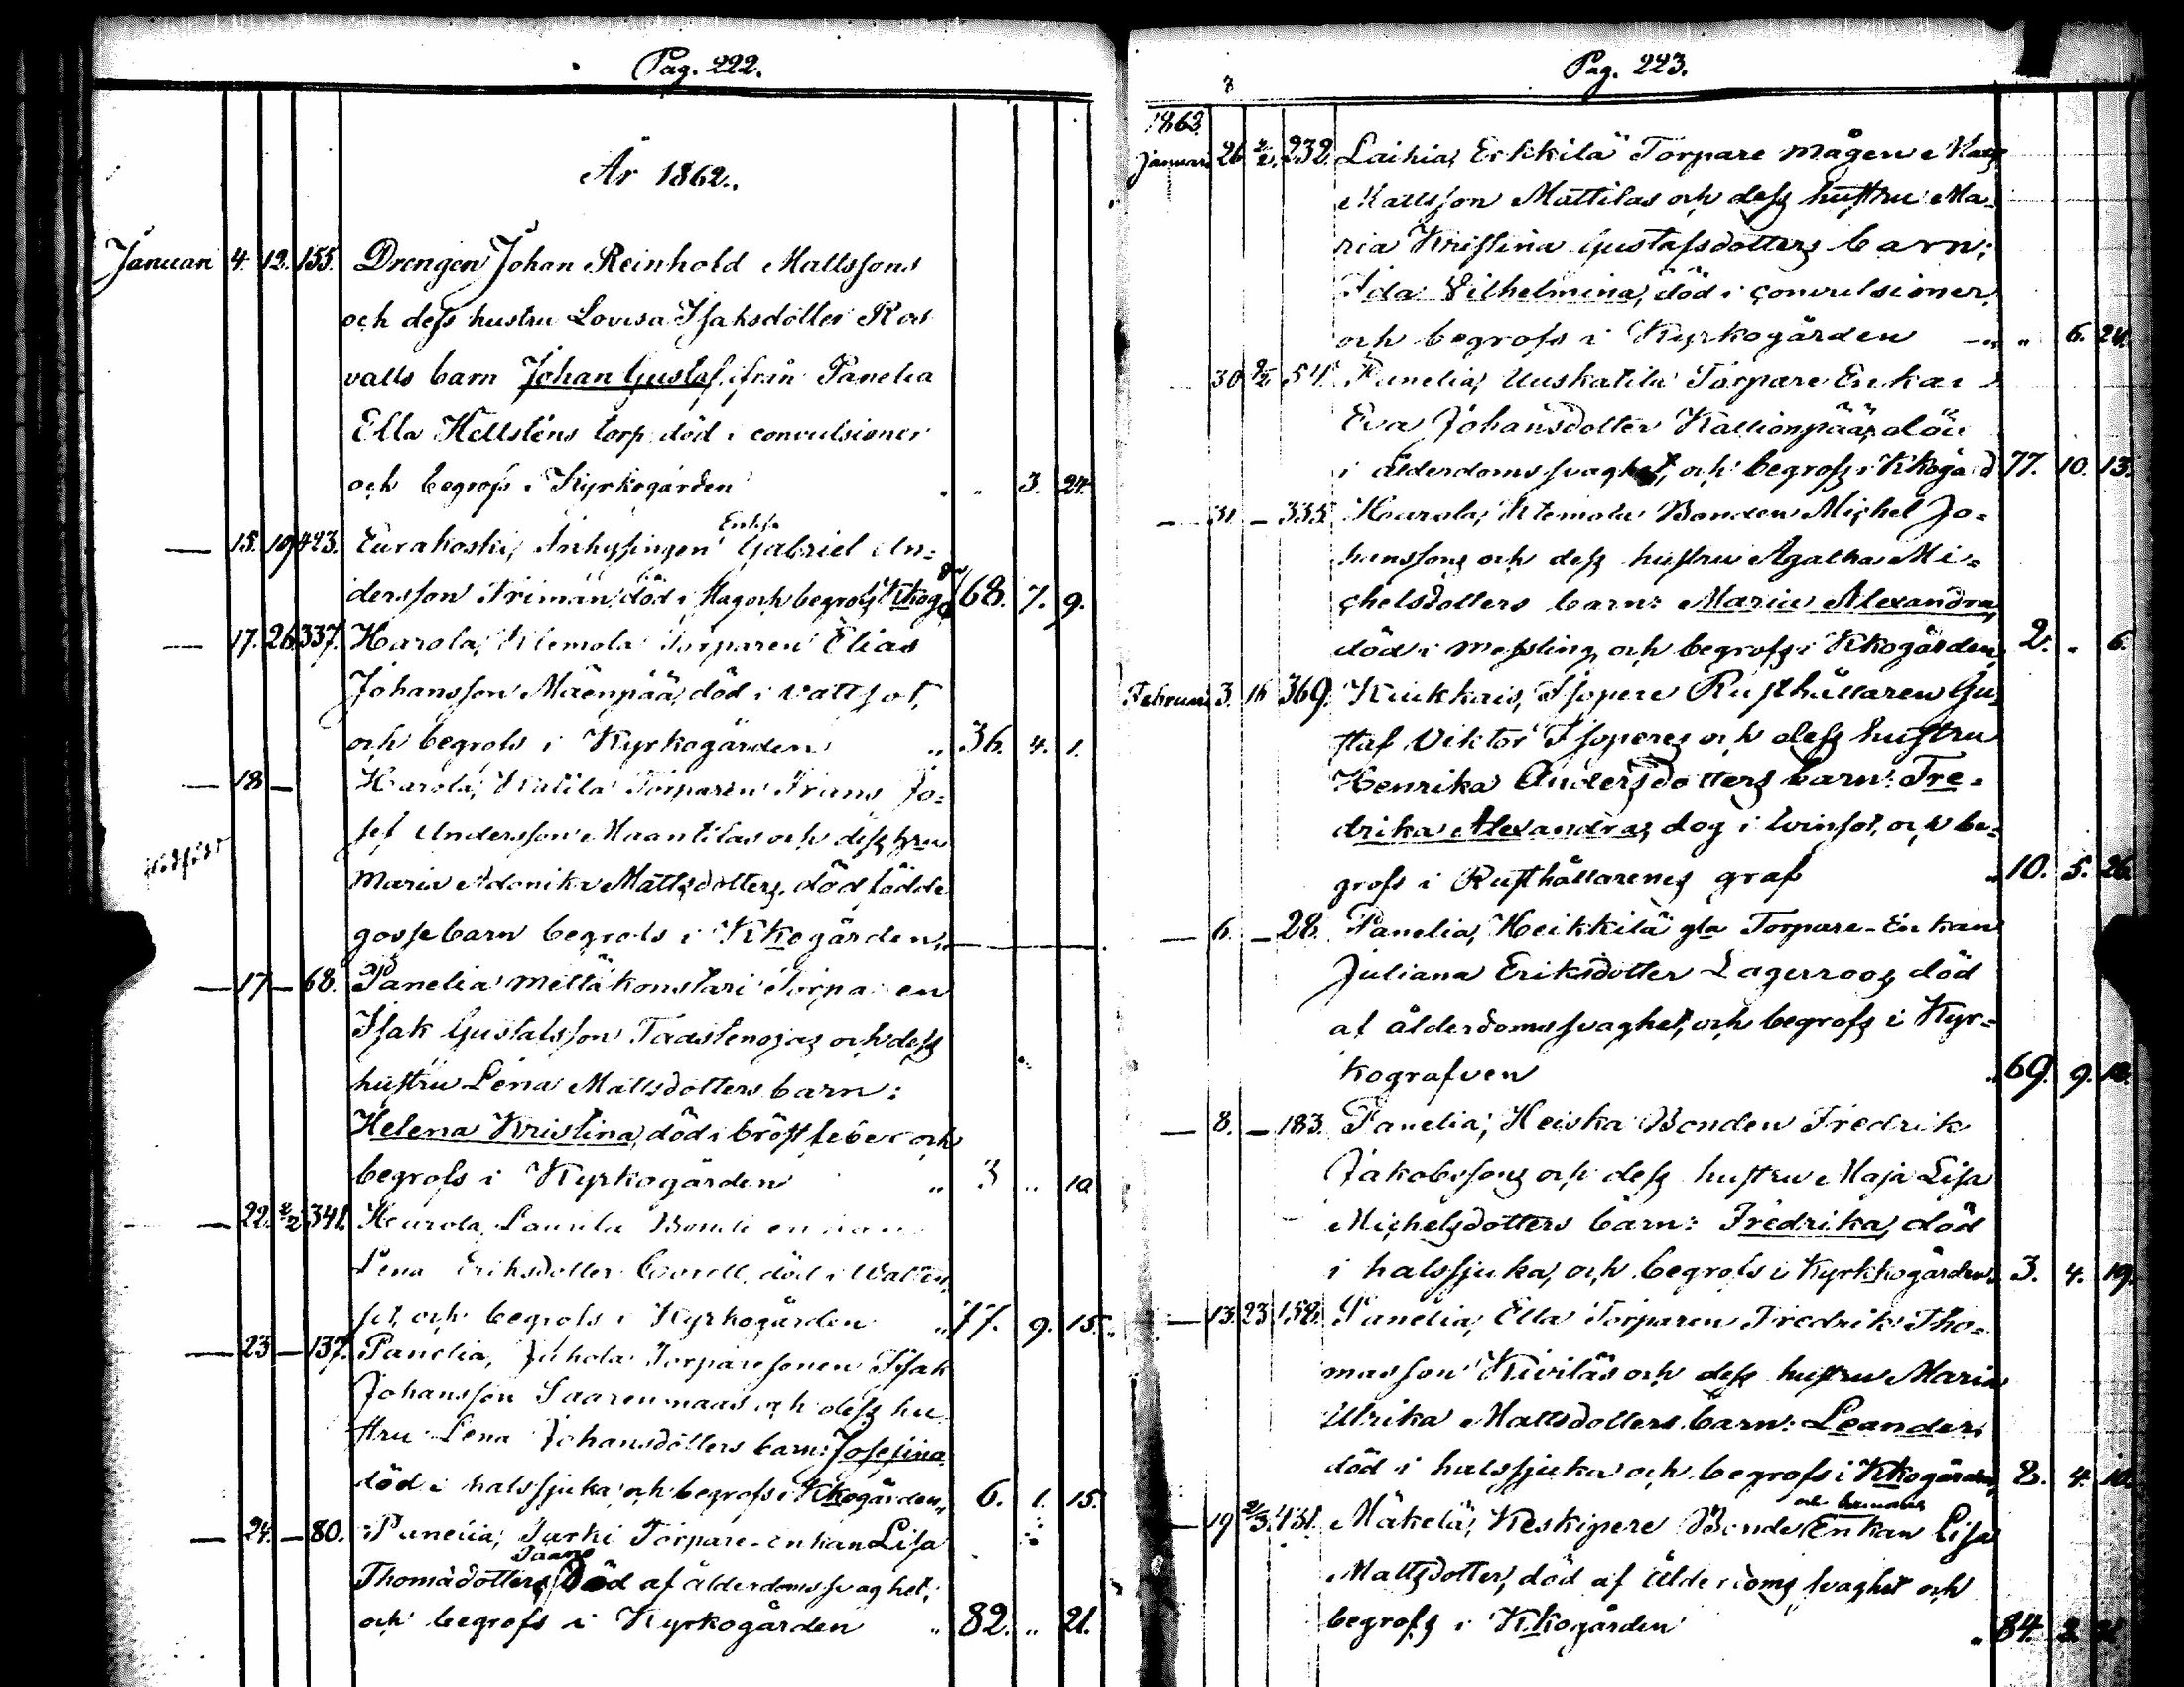 Pag. 222.
År 1862.
Januari 4. 12. 155. Drengen Johan Reinhold Mattssons
och dess hustru Lovisa Isaksdotter Ros
valls barn Johan Gustaf, ifrån Panelia
Ella Hellsténs torp död i convulsioner
och begrofs i Kyrkogården „ „ 3. 24.
— 15. 19 423. Eurakoski, Inhysingen Enkl. Gabriel An-
dersson Friman, död i och begrofs Kkog 68. 7. 9.
— 17. 26 337. Harola, Klemola Torparen Elias
Johansson Mäenpää, död i vattsot,
och begrofs i Kyrkogården „ 36. 4. 1.
— 18 — Harola, Torparen Frans Jo-
sef Andersson Maantilas och dess hru
Maria Adonika Mattsdotters dödfödde
gossebarn begrofs i Kkogården.
— 17 — 68. Panelia Torparen
Isak Gustafsson och dess
hustru Lena Mattsdotters barn:
Helena Kristina, död i bröstfeber och
begrofs i Kyrkogården „ 3 „ 10
— 22. 2/2 341. Harola, Laurila Bonde enkan
Lena Eriksdotter död i Watten
sot, och begrofs i Kyrkogården „ 77. 9. 15.
— 23 — 137. Panelia, Juhola Torparesonen Isak
Johansson Saarenmaas och dess hu
stru Lena Johansdotters barn: Josefina
död i halssjuka och begrofs i Kkogården, 6. 1. 15.
— 24. — 80. Panelia, Jurki Torpare-enkan Lisa
Thomasdotter, död af ålderdomssvaghet,
och begrofs i Kyrkogården „ 82. „ 21.
Pag. 223.
1862.
Januari 26 2/2. 232. Laihia, Erkkilä Torpare mågen
Mattsson Mattilas och dess hustru Ma-
ria Kristina Gustafsdotters barn:
Ida Vilhelmina, död i convulsioner,
och begrofs i Kyrkogården „ 6. 24.
30 2/2 54. Panelia, Uuskatila Torpare Enkan
Eva Johansdotter Kallionpää, död
i ålderdomssvaghet, och begrofs i Kkogård 77. 10. 13.
— 31 — 335. Harola, Klemola Bonden Michel Jo-
hanssons och dess hustru Agatha Mi-
chelsdotters barn: Maria Alexandra,
död i messling och begrofs i Kkogården, 2. „ 6.
Februari 3. 16 369. Kiukkais, Isopere Rusthållaren Gu-
staf Viktor Isoperes och dess hustru
Henrika Andersdotters barn: Fre-
drika Alexandra, dog i tvinsot, och be-
grofs i Rusthållarenes graf „ 10. 5. 26.
— 6. — 28. Panelia, Heikkilä gla Torpare-Enkan
Juliana Eriksdotter Lagerroos, död
af ålderdomssvaghet, och begrofs i Kyr-
kografven „ 69. 9.
— 8. — 183. Panelia, Heiska Bonden Fredrik
Jakobssons och dess hustru Maja Lisa
Michelsdotters barn: Fredrika, död
i halssjuka, och begrofs i Kyrkkogården, 3. 4. 19.
— 13. 23 158. Panelia, Ella Torparen Fredrik Tho-
masson Kiviläs och dess hustru Maria
Ulrika Mattsdotters barn: Leander,
död i halssjuka och begrofs i Kkogården, 8. 4.
— 19 2/3. 431. Mäkelä, Keskipere Bonde Enkan Lisa
Mattsdotter, död af ålderdoms svaghet och
begrofs i Kkogården „ 84.